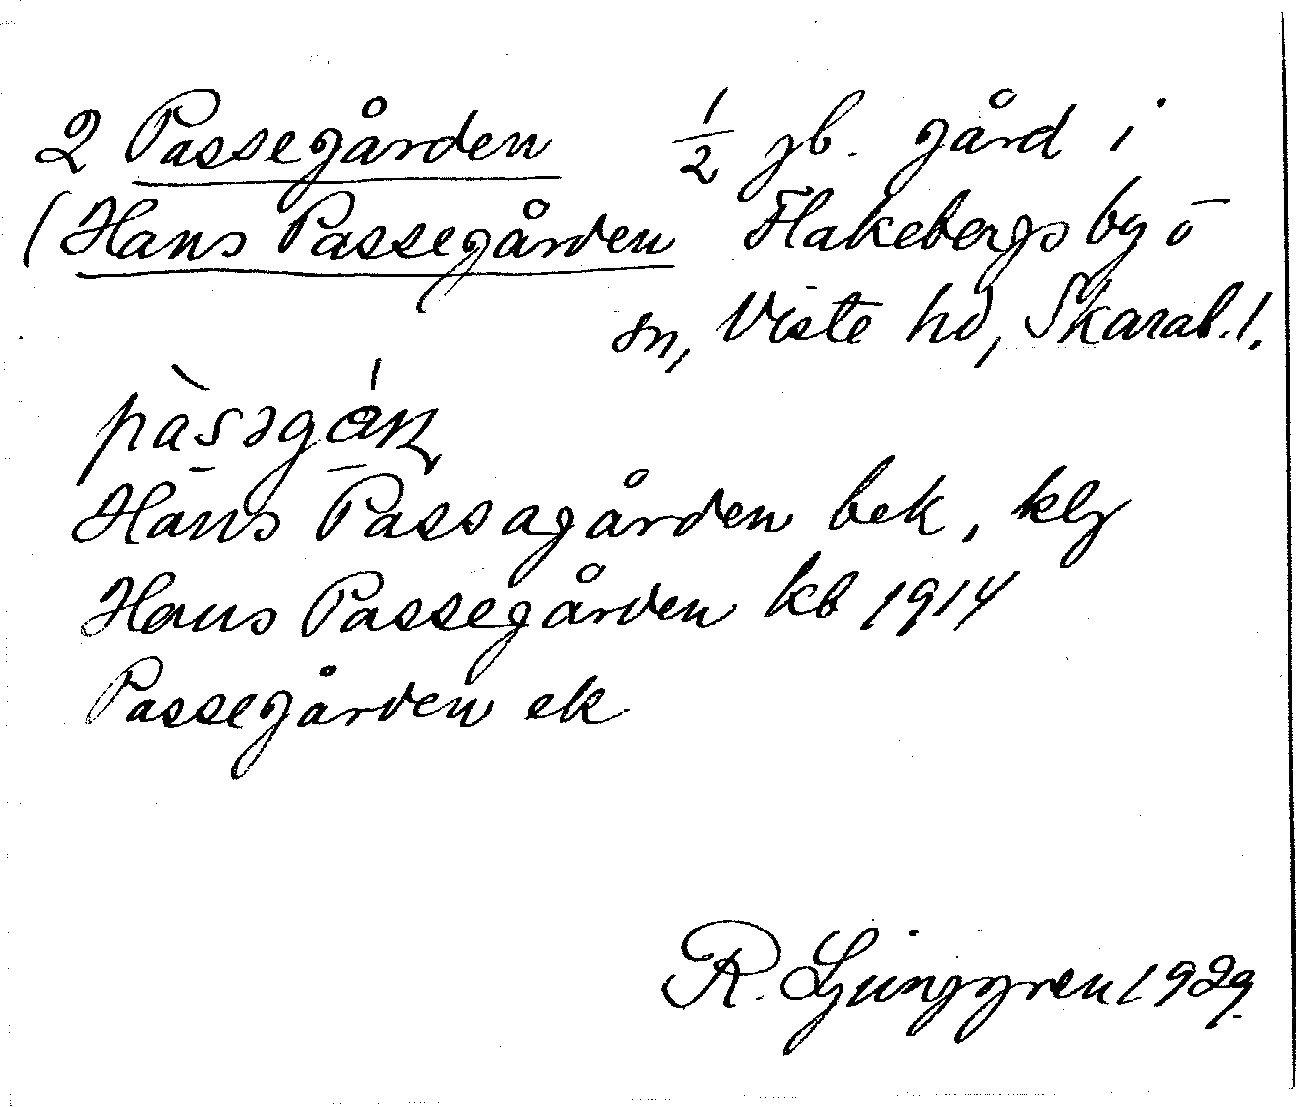 2 Passegården 1/2 gb. gård i
(Hans Passegården Flakebergs by o
sn, Viste hd, Skarab. l.
Hans Passagården bek, klg
Hans Passegården kb 1914
Passegården ek
R. Ljunggren 1929.